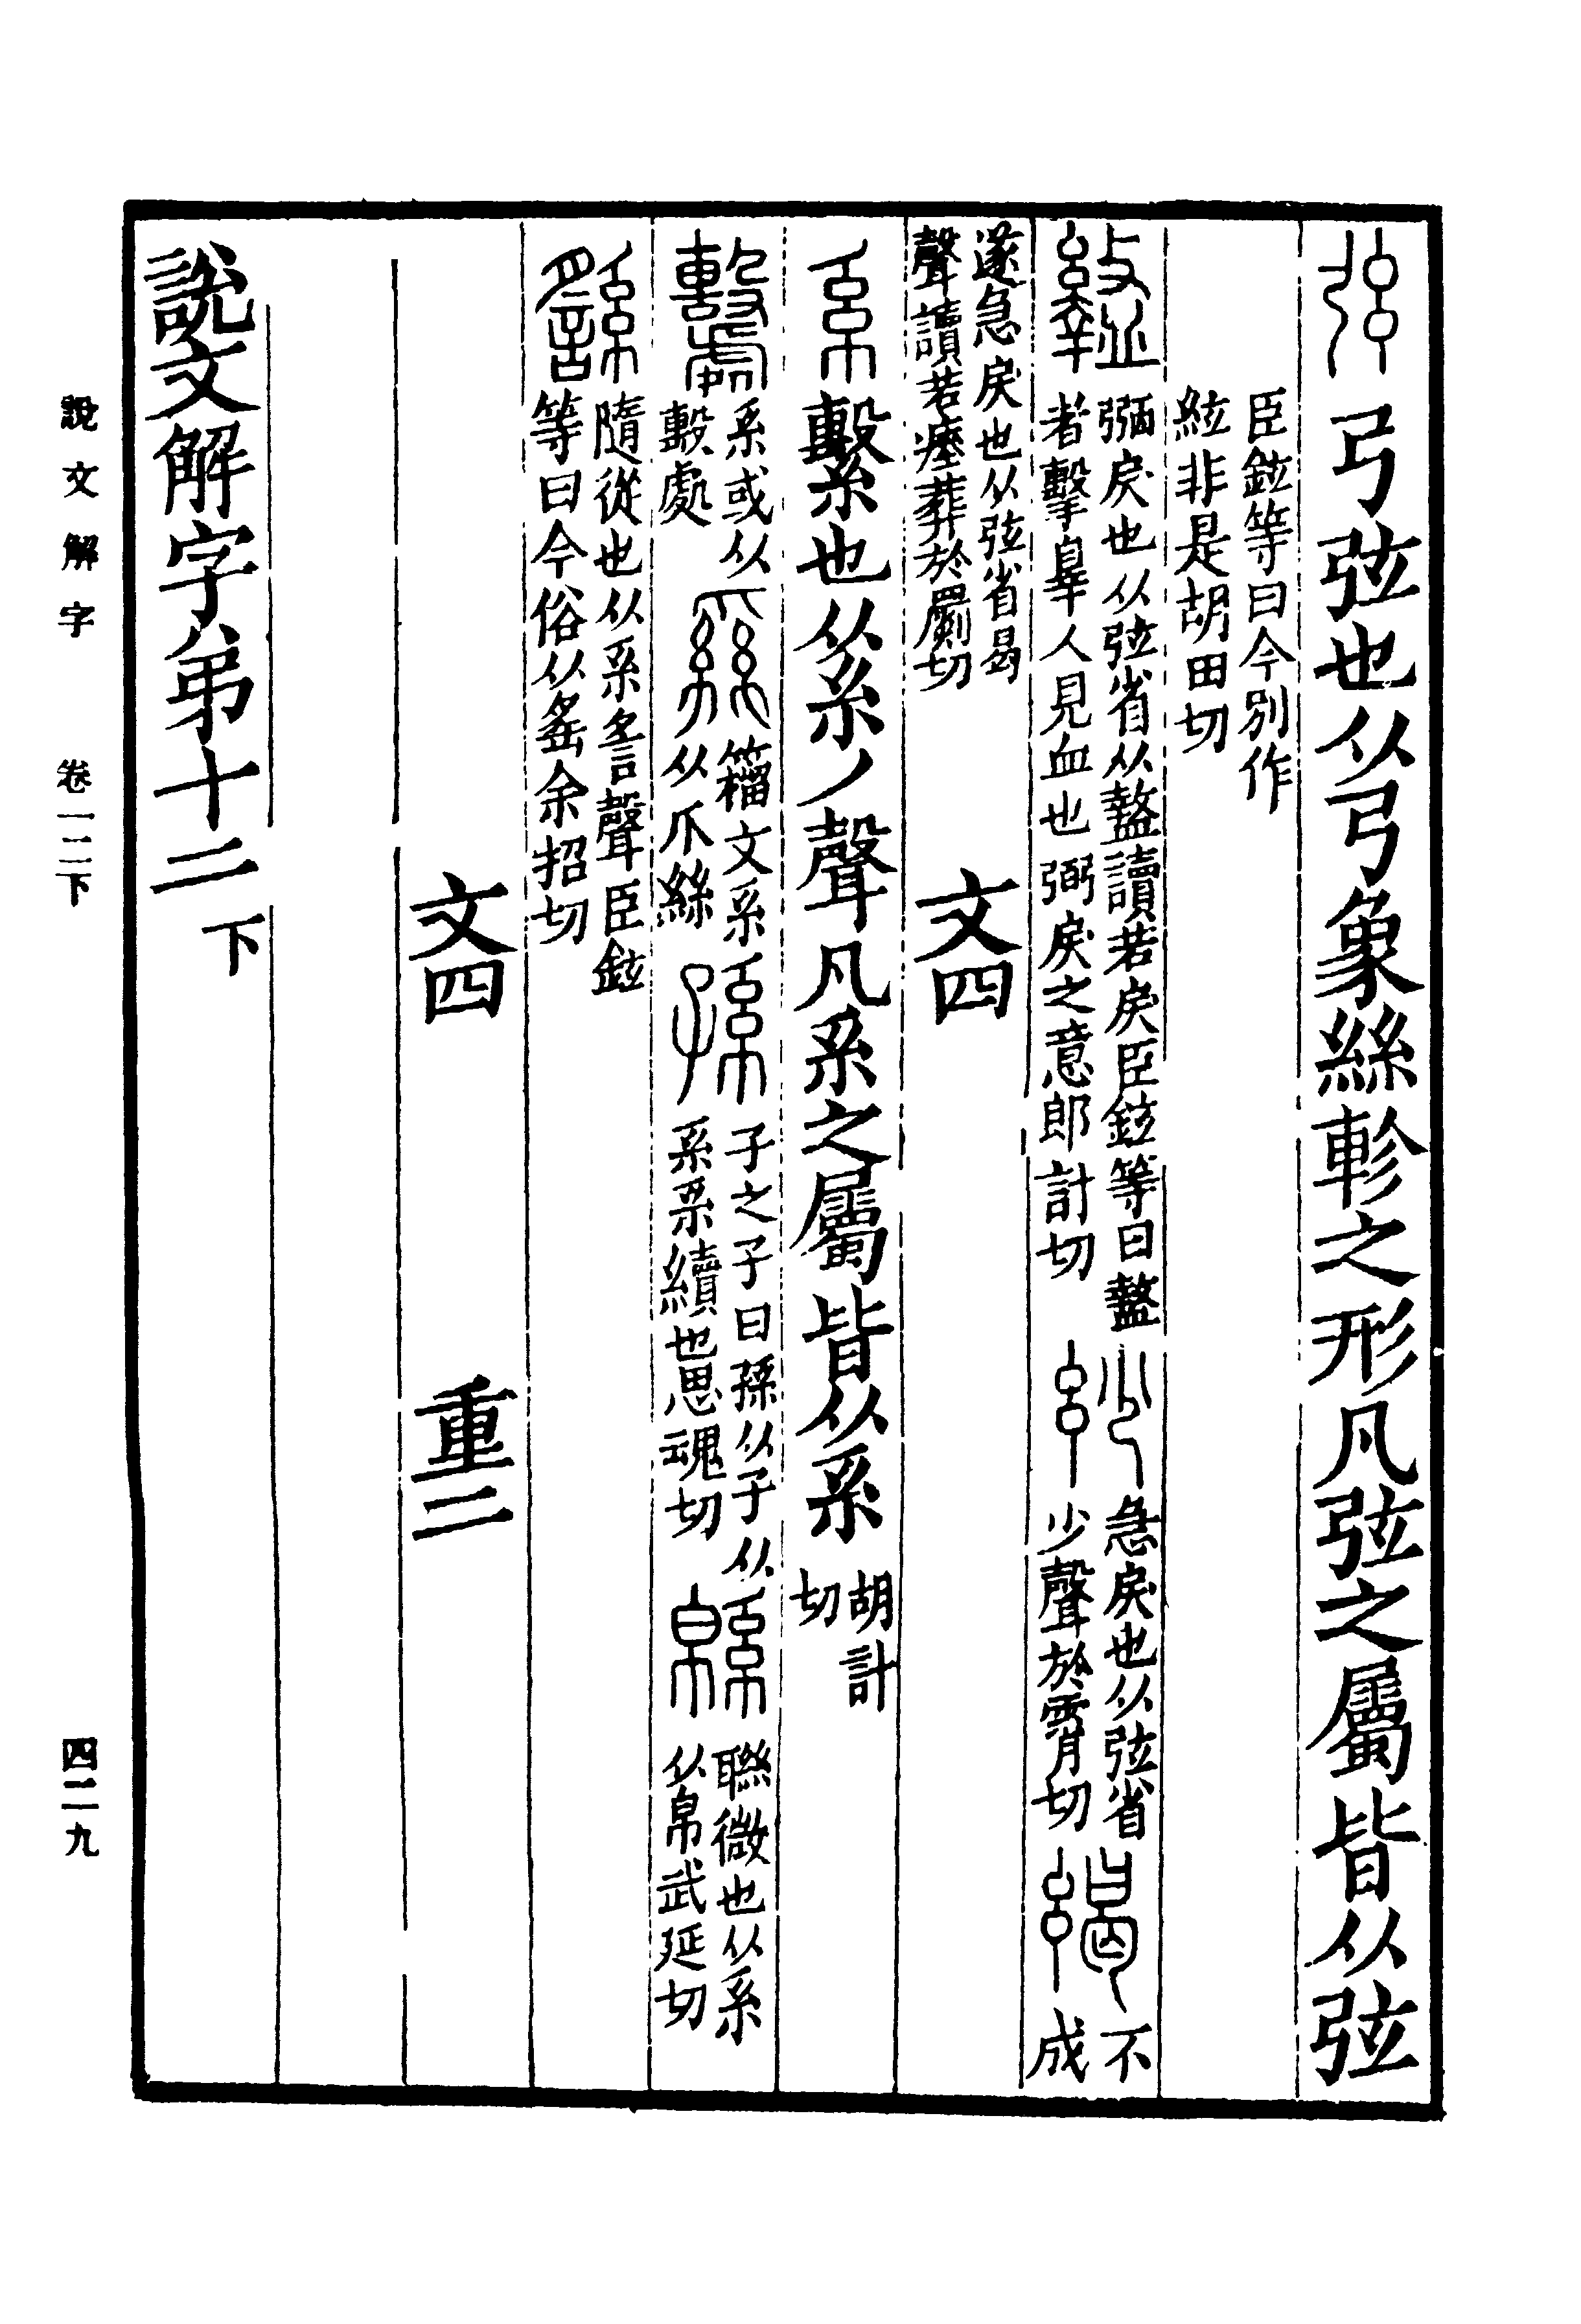 弦 弓弦也从弓象絲軫之形凡弦之屬皆从弦
臣鉉等曰今別作
絃非是胡田切
盭 弼戾也从弦省从盩讀若戾臣鉉等曰盩
者擊辠人見血也弼戾之意郎計切
急戾也从弦省
少聲於霄切
不
成
遂急戾也从弦省曷
聲讀若瘞葬於罽切
文四
系 繫也从糸丿聲凡系之屬皆从系 胡計
切
系或从
毄處
籀文系
从爪絲
孫 子之子曰孫从子从
系系續也思魂切
緜 聯微也从系
从帛武延切
隨從也从系䚻聲臣鉉
等曰今俗从䍃余招切
文四 重二
說文解字弟十二 下
說文解字 卷一二下 四二九